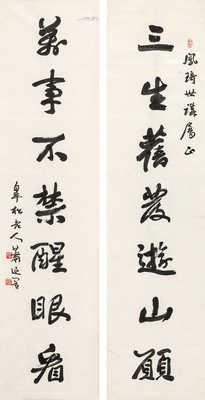 鳳琦世講屬正
三生舊發遊山願
萬事不禁醒眼看
皋松老人蕭退闇